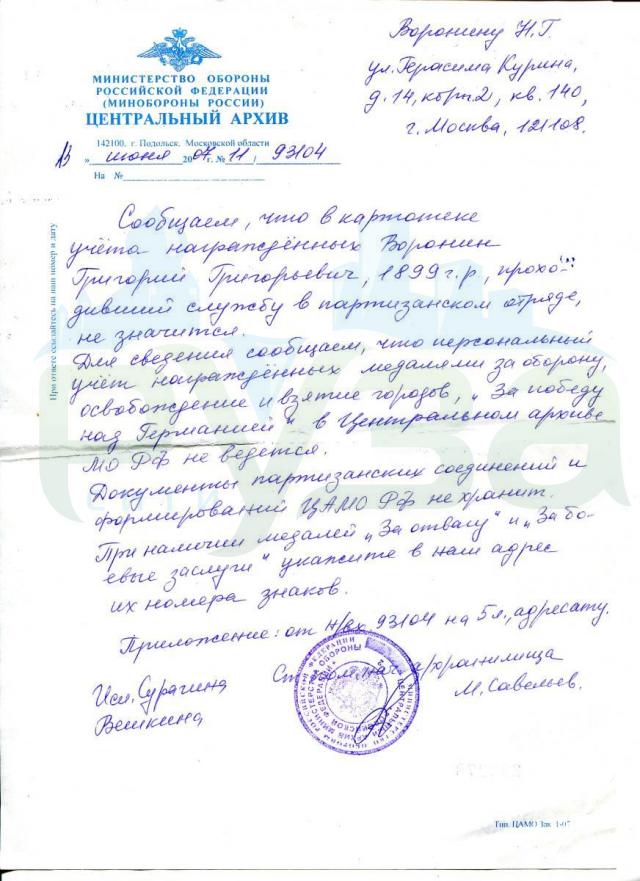 Воронину Н.Г.
ул. Герасима Курина,
д. 14, корп. 2, кв. 140,
г. Москва, 121108.
МИНИСТЕРСТВО ОБОРОНЫ
РОССИЙСКОЙ ФЕДЕРАЦИИ
(МИНОБОРОНЫ РОССИИ)
ЦЕНТРАЛЬНЫЙ АРХИВ
142100, г. Подольск, Московской области
" июня 2007 г. № 11 / 93104
На №
При ответе ссылайтесь на наш номер и дату
Сообщаем, что в картотеке
учёта награждённых Воронин
Григорий Григорьевич, 1899 г.р., прохо-
дивший службу в партизанском отряде,
не значится.
Для сведения сообщаем, что персональный
учёт награждённых медалями за оборону,
освобождение и взятие городов, „За победу
над Германией" в Центральном архиве
МО РФ не ведётся.
Документы партизанских соединений и
формирований ЦАМО РФ не хранит.
При наличии медалей „За отвагу" и „За бо-
евые заслуги" укажите в наш адрес
их номера знаков.
Приложение: от н/вх. 93104 на 5 л., адресату.
архивохранилища
М. Савельев.
Исп. Сурагина
Вешкина
Тип. ЦАМО Зак. 1-07